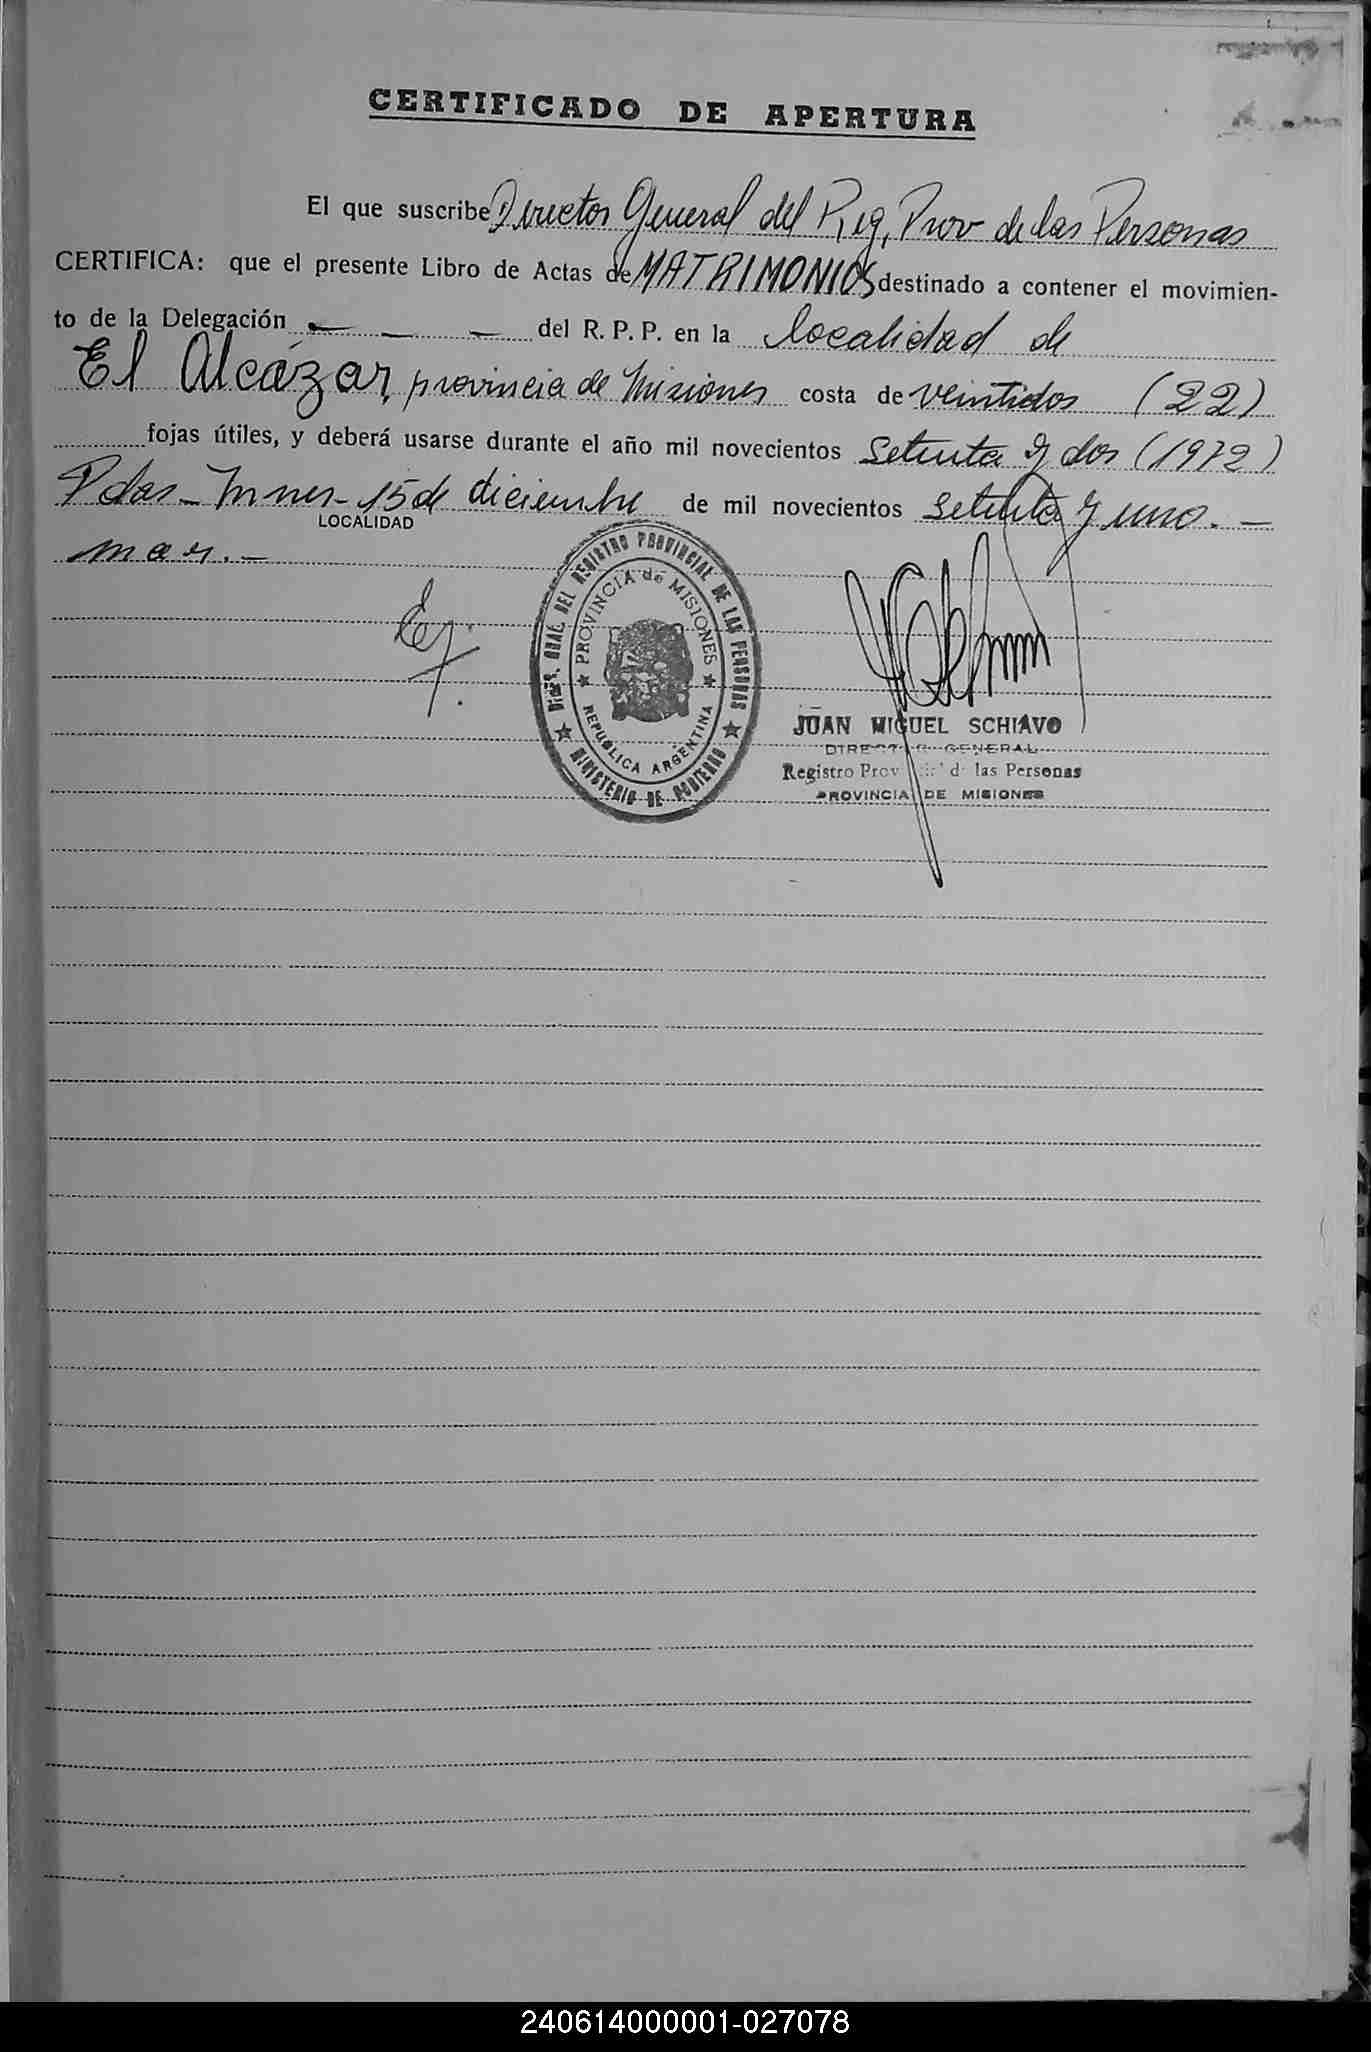 CERTIFICADO DE APERTURA
El que suscribe Director General del Reg. Prov de las Personas
CERTIFICA: que el presente Libro de Actas de MATRIMONIOS destinado a contener el movimien-
to de la Delegación — — — del R. P. P. en la localidad de
El Alcázar, provincia de Misiones costa de veintidos (22)
fojas útiles, y deberá usarse durante el año mil novecientos setenta y dos (1972)
Pdas - Mnes - 15 de diciembre de mil novecientos setenta y uno. —
LOCALIDAD
DIREC. GRAL. DEL REGISTRO PROVINCIAL DE LAS PERSONAS
PROVINCIA de MISIONES
REPUBLICA ARGENTINA
MINISTERIO DE GOBIERNO
JUAN MIGUEL SCHIAVO
DIRECTOR GENERAL
Registro Provincial de las Personas
PROVINCIA DE MISIONES
240614000001-027078